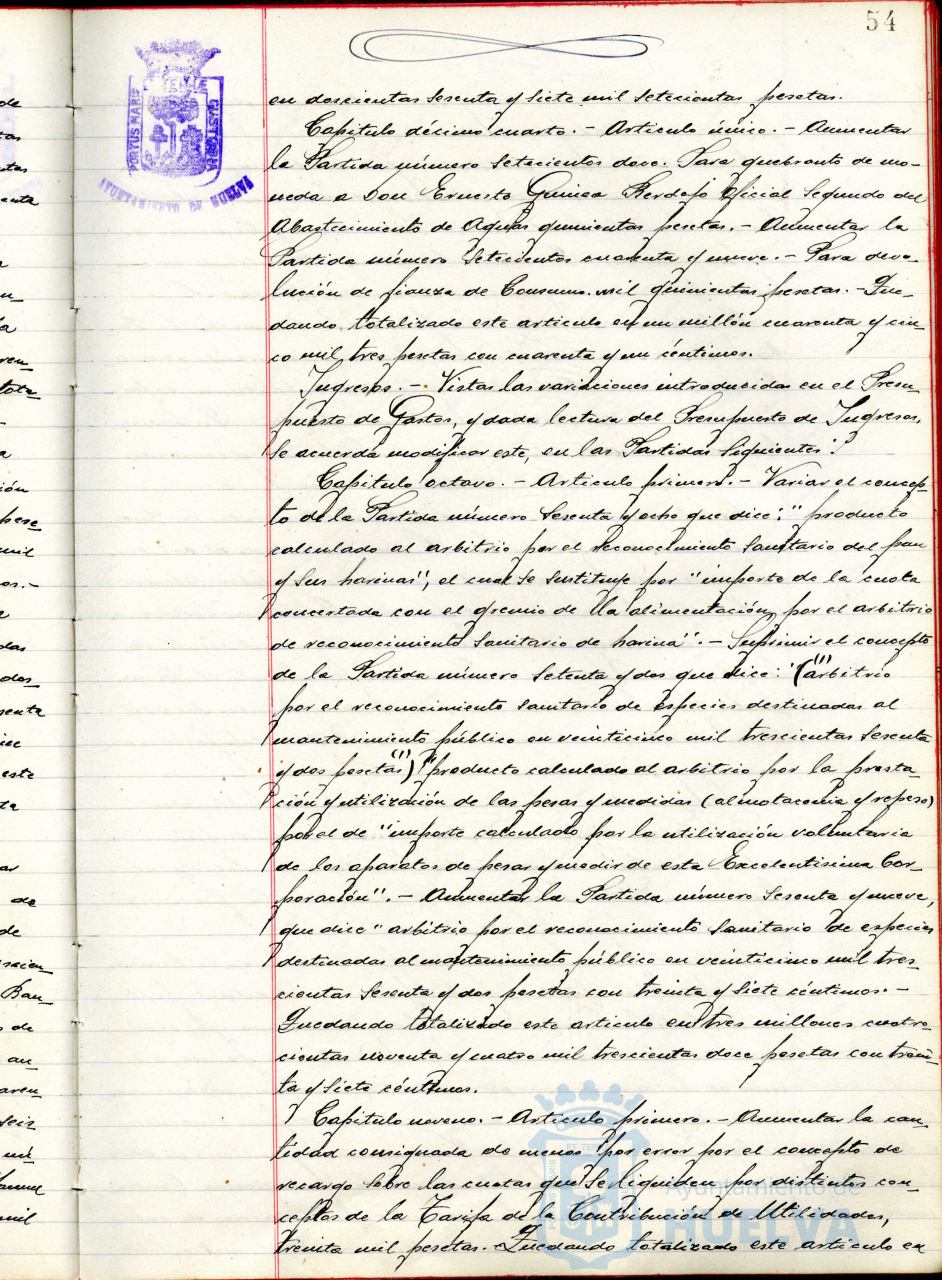 54
PORTUS MARIS ET TERRAE CUSTODIA
AYUNTAMIENTO DE HUELVA
en doscientas sesenta y siete mil setecientas pesetas.
Capitulo décimo cuarto. - Articulo único. - Aumentar
la Partida número setecientos doce. Para quebranto de mo-
neda a Don Ernesto Guinea Oficial Segundo del
Abastecimiento de Aguas quinientas pesetas. - Aumentar la
Partida número setecientos cuarenta y nueve. - Para devo-
lución de fianza de Consumo mil quinientas pesetas. - Que-
dando totalizado este articulo en un millón cuarenta y cin-
co mil tres pesetas con cuarenta y un céntimos.
Ingresos. - Vistas las variaciones introducidas en el Presu-
puesto de Gastos, y dada lectura del Presupuesto de Ingresos,
se acuerda modificar este, en las Partidas siguientes:
Capitulo octavo. - Articulo primero. - Variar el concep-
to de la Partida número sesenta y ocho que dice: "producto
calculado al arbitrio por el reconocimiento sanitario del pan
y sus harinas", el cual se sustituye por "importe de la cuota
concertada con el gremio de la alimentación, por el arbitrio
de reconocimiento sanitario de harina". - Suprimir el concepto
de la Partida número setenta y dos que dice: "("arbitrio
por el reconocimiento sanitario de especies destinadas al
mantenimiento público en veinticinco mil trescientas sesenta
y dos pesetas") "producto calculado al arbitrio por la presta-
ción y utilización de las pesas y medidas (almotacenia y repeso)
por el de "importe calculado por la utilización voluntaria
de los aparatos de pesar y medir de esta Excelentisima Cor-
poración". - Aumentar la Partida número sesenta y nueve,
que dice "arbitrio por el reconocimiento sanitario de especies
destinadas al mantenimiento público en veinticinco mil tres-
cientas sesenta y dos pesetas con treinta y siete céntimos. -
Quedando totalizado este articulo en tres millones cuatro-
cientas noventa y cuatro mil trescientas doce pesetas con trein-
ta y siete céntimos.
Capitulo noveno. - Articulo primero. - Aumentar la can-
tidad consignada de menos por error por el concepto de
recargo sobre las cuotas que se liquiden por distintos con-
ceptos de la Tarifa de la Contribución de Utilidades,
treinta mil pesetas. Quedando totalizado este articulo en
Ayuntamiento de
HUELVA